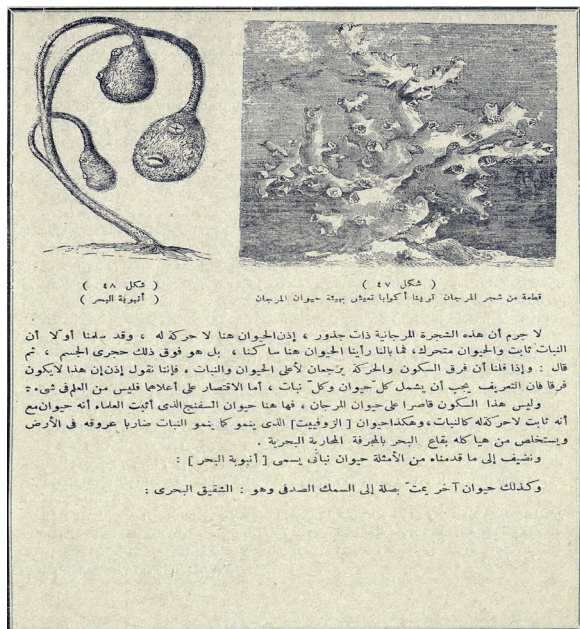 ( شكل ٤٧ )
قطعة من شجر المرجان ترينا أكوابا تعيش بهيئة حيوان المرجان
( شكل ٤٨ )
( أنبوبة البحر )
لا جرم أن هذه الشجرة المرجانية ذات جذور ، إذن الحيوان هنا لا حركة له ، وقد سلمنا أولا أن
النبات ثابت والحيوان متحرك، فما بالنا رأينا الحيوان هنا ساكنا ، بل هو فوق ذلك حجرى الجسم ، ثم
قال : وإذا قلنا أن فرق السكون والحركة يرجعان لأعلى الحيوان والنبات ، فإننا نقول إذن إن هذا لا يكون
فرقا فان التعريف يجب أن يشمل كلّ حيوان وكلّ نبات ، أما الاقتصار على أعلاهما فليس من العلم فى شىء :
وليس هذا السكون قاصرا على حيوان المرجان ، فها هنا حيوان السفنج الذى أثبت العلماء أنه حيوان مع
أنه ثابت لا حركة له كالنبات، وهكذا حيوان [ الزوفييت ] الذى ينمو كما ينمو النبات ضاربا عروقه فى الأرض
ويستخلص من هيا كله بقاع البحر بالمجرفة المحارية البحرية .
ونضيف إلى ما قدمناه من الأمثلة حيوان نباتى يسمى [ أنبوبة البحر ] :
وكذلك حيوان آخر يمتّ بصلة إلى السمك الصدفى وهو : الشقيق البحرى :